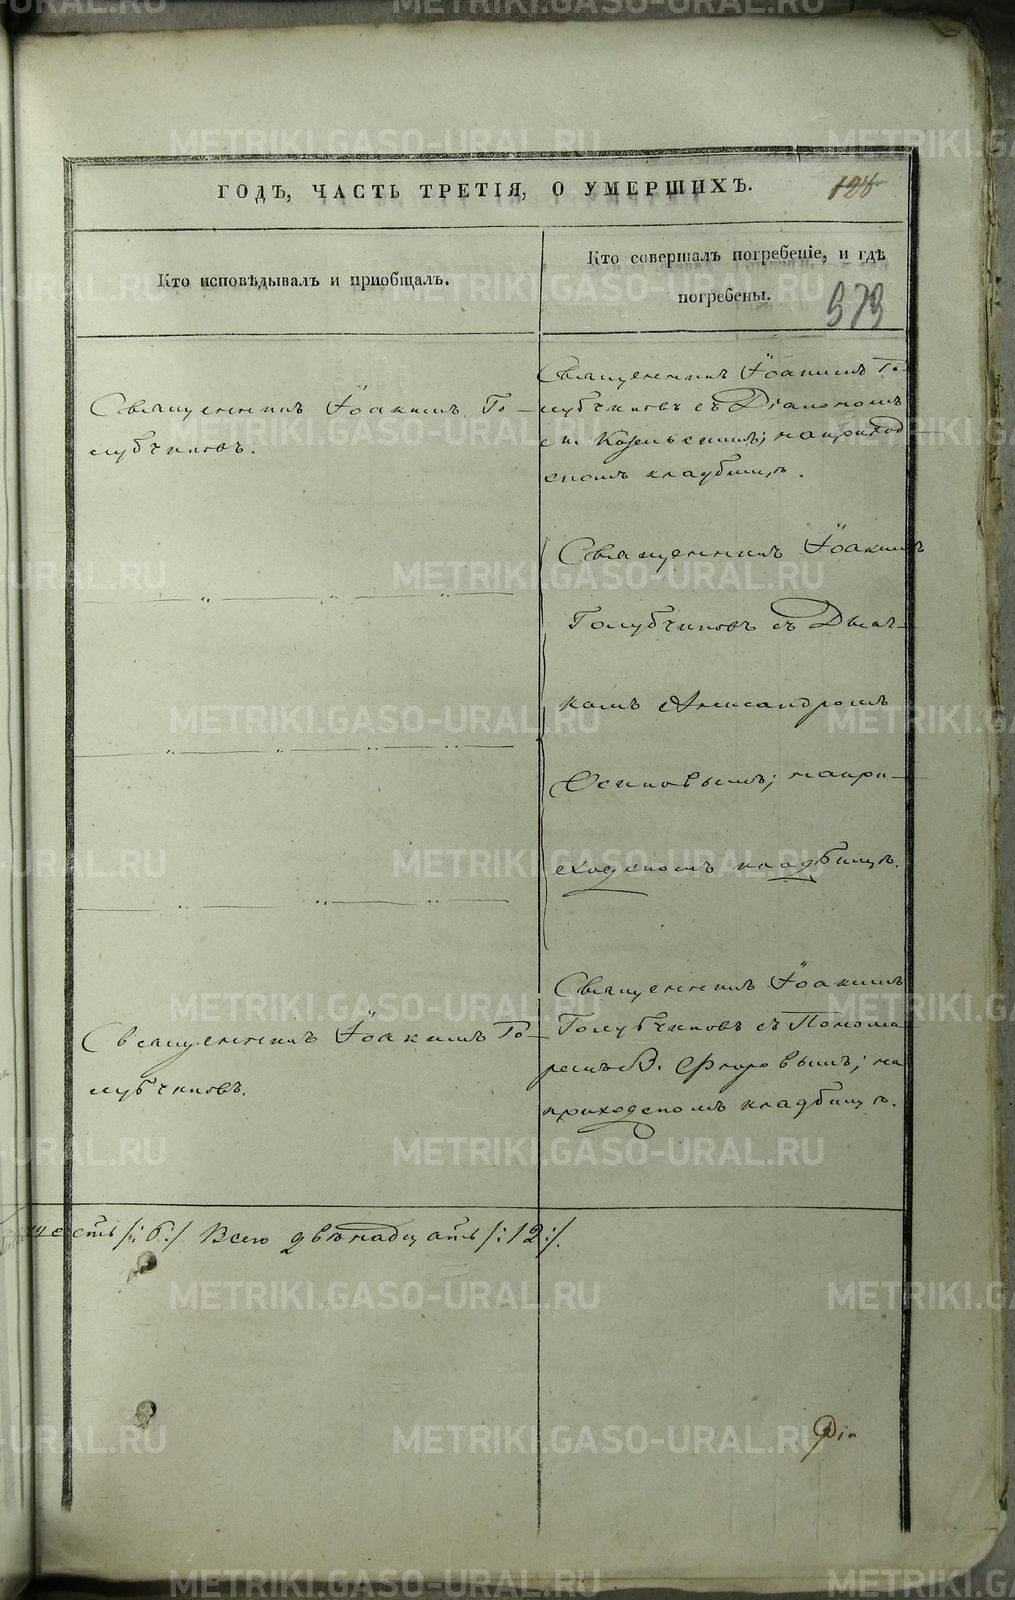 ГОДЪ, ЧАСТЬ ТРЕТІЯ, О УМЕРШИХЪ.
128
Кто исповѣдывалъ и пріобщалъ.
Кто совершалъ погребеніе, и гдѣ
погребены.
973
Священникъ Іоакимъ Го-
лубчиковъ.
Священникъ Іоакимъ Го-
лубчиковъ съ Діакономъ
Козельскимъ; на приход-
скомъ кладбищѣ.
Священникъ Іоакимъ
Голубчиковъ съ Дьяч-
комъ Александромъ
Осиповымъ; на при-
ходскомъ кладбищѣ.
Священникъ Іоакимъ Го-
лубчиковъ.
Священникъ Іоакимъ
Голубчиковъ съ Понома-
ремъ В. Флоровымъ; на
приходскомъ кладбищѣ.
шесть /:6:/. Всего двѣнадцать /:12:/.
Діа
METRIKI.GASO-URAL.RU